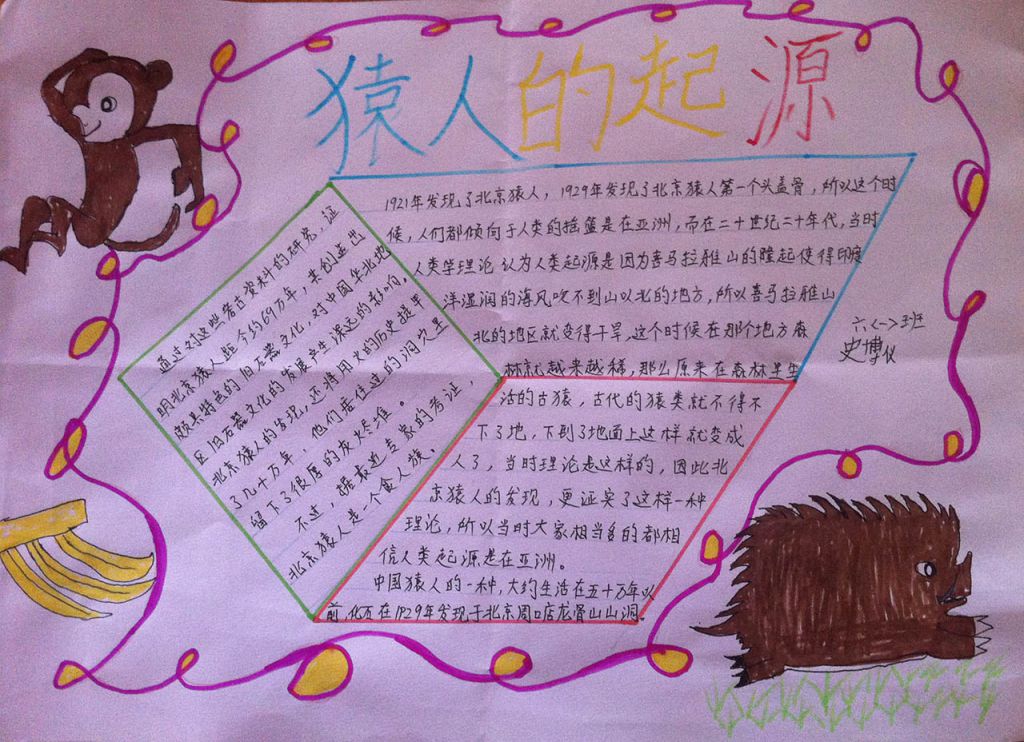 猿人的起源
1921年发现了北京猿人，1929年发现了北京猿人第一个头盖骨，所以这个时
候，人们都倾向于人类的摇篮是在亚洲，而在二十世纪二十年代，当时
人类学理论认为人类起源是因为喜马拉雅山的隆起使得印度
洋湿润的海风吹不到山以北的地方，所以喜马拉雅山
北的地区就变得干旱，这个时候在那个地方森
林就越来越稀，那么原来在森林里生
活的古猿，古代的猿类就不得不
下了地，下到了地面上这样就变成
人了，当时理论是这样的，因此北
京猿人的发现，更证实了这样一种
理论，所以当时大家相当多的都相
信人类起源是在亚洲。
中国猿人的一种，大约生活在五十万年以
前，化石在1929年发现于北京周口店龙骨山山洞。
通过对这些考古资料的研究，证
明北京猿人距今约69万年，共创造出
颇具特色的旧石器文化，对中国华北地
区旧石器文化的发展产生深远的影响。
北京猿人的发现，还将用火的历史提早
了几十万年，他们居住过的洞穴里
留下了很厚的灰烬堆。
不过，据最近专家的考证，
北京猿人是一个食人族。
六<一>班
史博仪